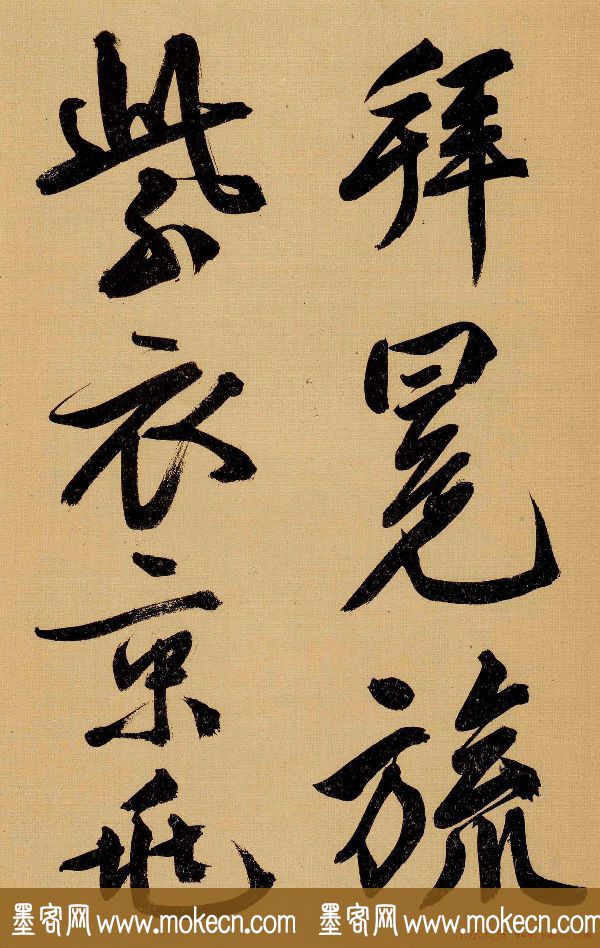 拜冕旒
紫衣京
墨客网 www.mokecn.com 墨客网 www.mokecn.com